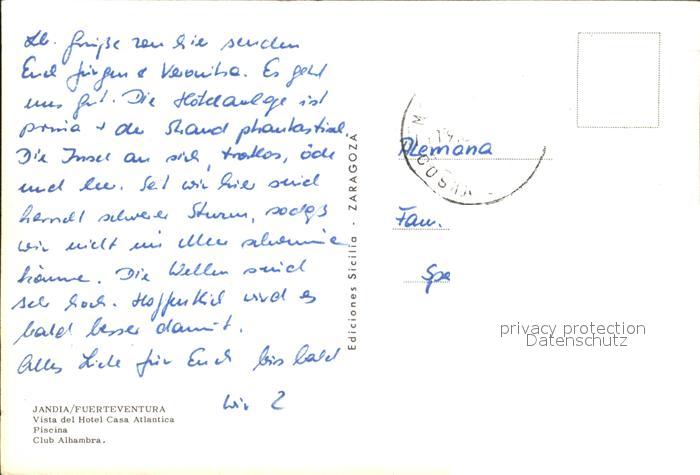 Lb. Grüße von hier senden
Euch Jürgen & Veronika. Es geht
uns gut. Die Hotelanlage ist
prima + der Strand phantastisch.
Die Insel an sich, trostlos, öde
und leer. Seit wir hier sind
herrscht schwerer Sturm, sodaß
wir nicht im Meer schwimmen
können. Die Wellen sind
sehr hoch. Hoffentlich wird es
bald besser damit.
Alles Liebe für Euch bis bald
Wir 2
JANDIA/FUERTEVENTURA
Vista del Hotel Casa Atlantica
Piscina
Club Alhambra.
Ediciones Sicilia - ZARAGOZA
Alemana
Fam.
privacy protection
Datenschutz